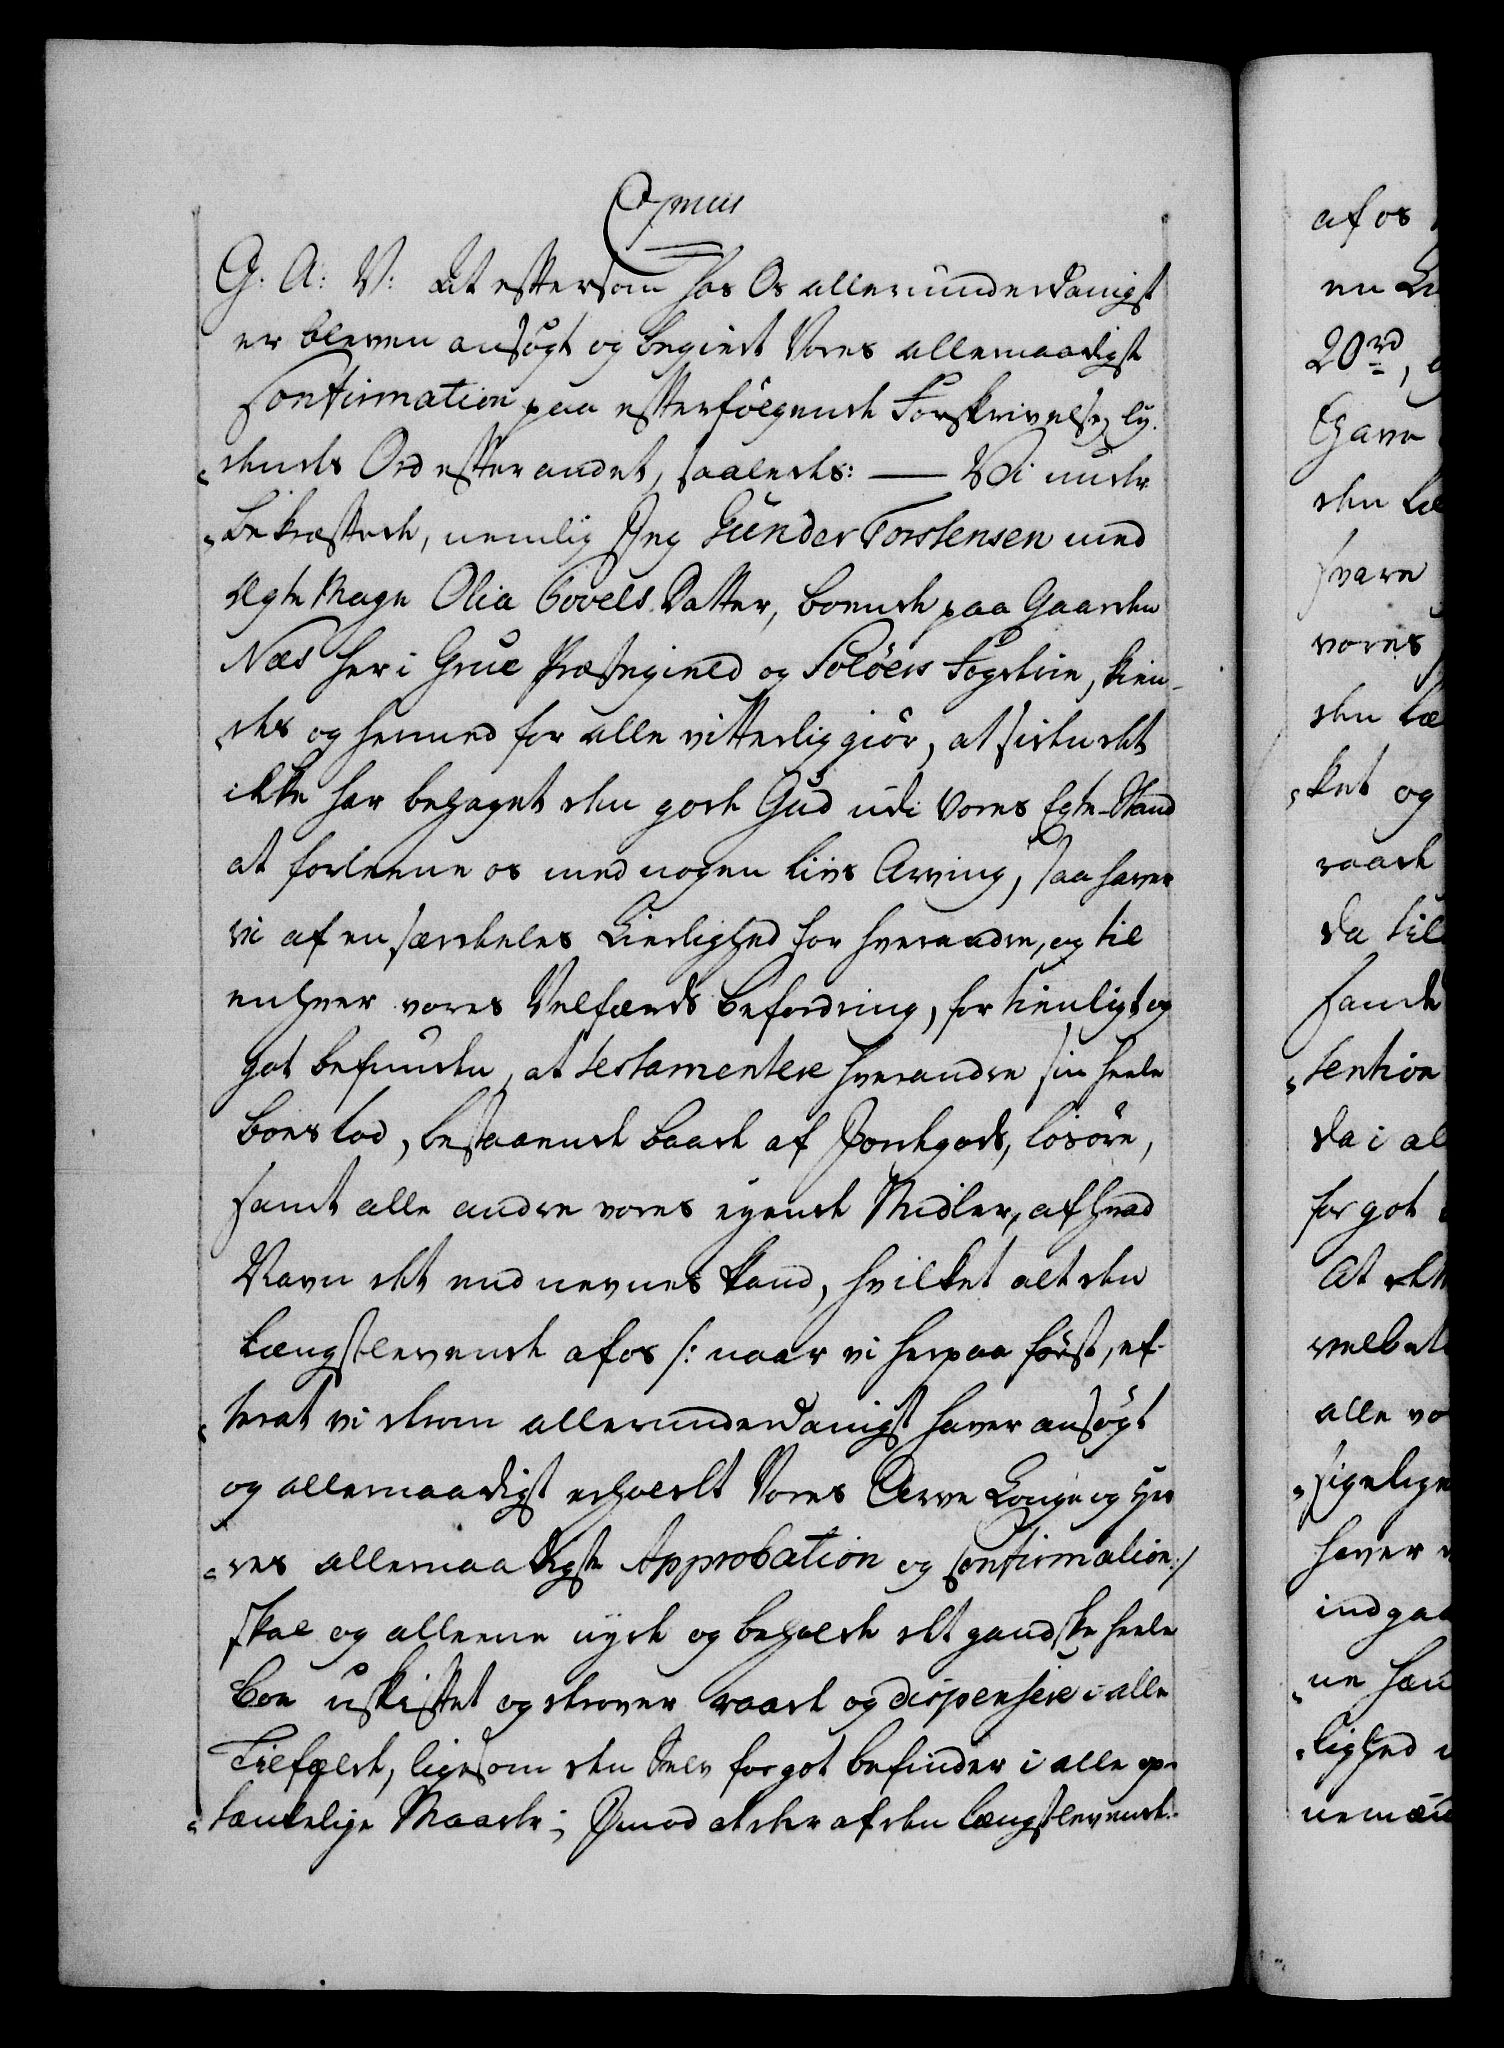 G: A: V: At eftersom hos Os allerunderdanigst
er bleven ansøgt og begiert Vores allernaadigste
Confirmation paa efterfølgende Forskrivelse, ly-
dende Ord efter andet, saaledes: — Vi under-
bekræftede, nemlig Jeg Gunder Torstensen med
Egte Mage Olia Povels Datter, boende paa Gaarden
Næs her i Grue Præstegield og Solöers Fogderie, kien-
des og hermed for alle vitterlig giör, at siden det
ikke har behaget den gode Gud udi Vores Egte-Stand
at forleene os med nogen livs Arving, saa haver
vi af en særdeles Kierlighed for hverandre, og til
enhver vores Velfærds befordring, for tienligt og
got befunden, at testamentere hverandre sin heele
Boeslod, bestaaende baade af Jordegods, losöre,
samt alle andre vores eyende Midler, af hvad
Navn det end nevnes kand, hvilket alt den
længstlevende af os /: naar vi herpaa först, ef-
terat vi derom allerunderdanigst haver ansögt
og allernaadigst erholdt Vores Arve Konge og Her-
res allernaadigste Approbation og Confirmation :/
skal og alleene nyde og beholde det gandske heele
Boe uskiftet og derover raade og dispensere i alle
Tilfælde, ligesom den selv for got befinder i alle op-
tænkelige Maader; Imod at der af den længstlevende
af os
20rd,
Gave
svare
vores
ket og
raade
da til
sention
da i al
for got
alle vo
sigelige
haver
indgaa
lighed